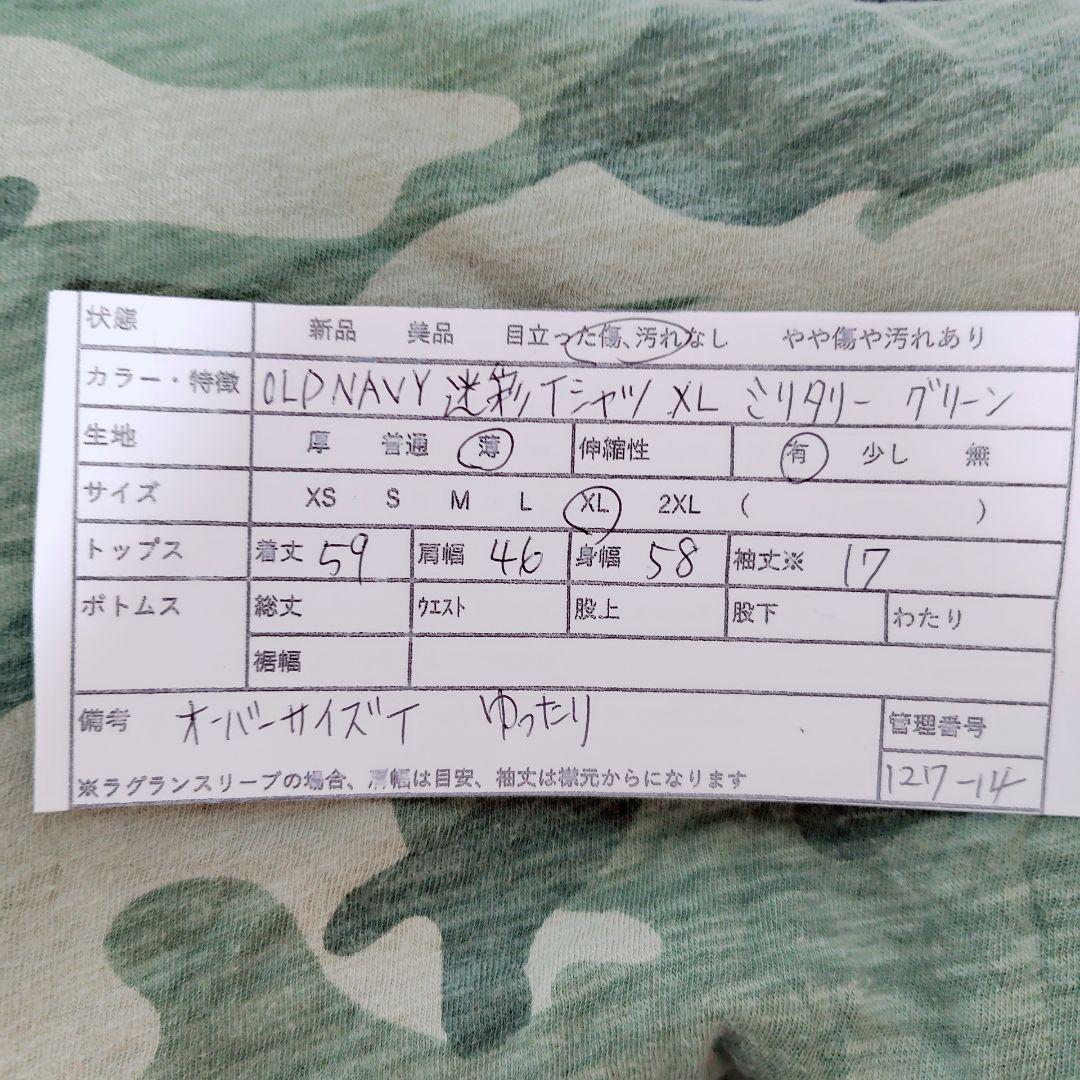 状態 新品 美品 目立った傷、汚れなし やや傷や汚れあり
カラー・特徴 OLD NAVY 迷彩 Tシャツ XL ミリタリー グリーン
生地 厚 普通 薄 伸縮性 有 少し 無
サイズ XS S M L XL 2XL ( )
トップス 着丈 59 肩幅 46 身幅 58 袖丈※ 17
ボトムス 総丈 ウエスト 股上 股下 わたり
裾幅
備考 オーバーサイズT ゆったり 管理番号
※ラグランスリーブの場合、肩幅は目安、袖丈は襟元からになります 127-14